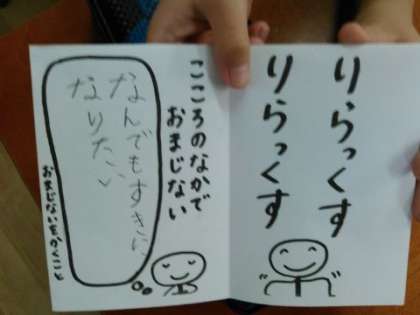 りらっくす
りらっくす
こころのなかで
おまじない
なんでもすきに
なりたい
おまじないをかくこと